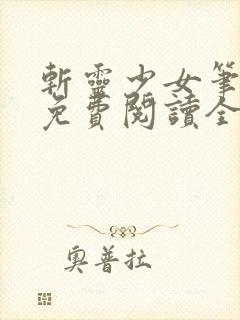 斬靈少女筆
免費閱讀全
奧普拉